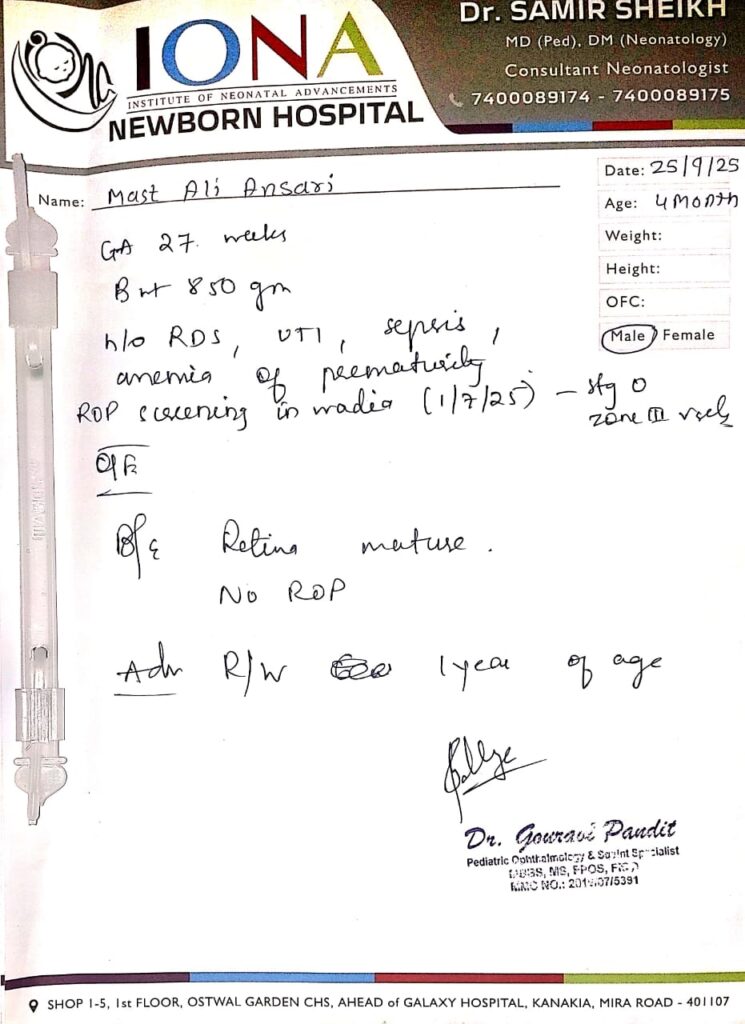 Dr. SAMIR SHEIKH
MD (Ped), DM (Neonatology)
Consultant Neonatologist
7400089174 - 7400089175
IONA
INSTITUTE OF NEONATAL ADVANCEMENTS
NEWBORN HOSPITAL
Name: Mast Ali Ansari
Date: 25/9/25
Age: 4 Month
Weight:
Height:
OFC:
Male Female
GA 27 weeks
B wt 850 gm
h/o RDS, UTI, sepsis,
anemia of prematurity
ROP screening in wadia (1/7/25) - stg 0
zone III
O/E
B/E Retina mature.
NO ROP
Adv R/W 1 year of age
Dr. Gouravi Pandit
Pediatric Ophthalmology & Squint Specialist
MBBS, MS, FPOS,
MMC NO.:
SHOP 1-5, 1st FLOOR, OSTWAL GARDEN CHS, AHEAD of GALAXY HOSPITAL, KANAKIA, MIRA ROAD - 401107